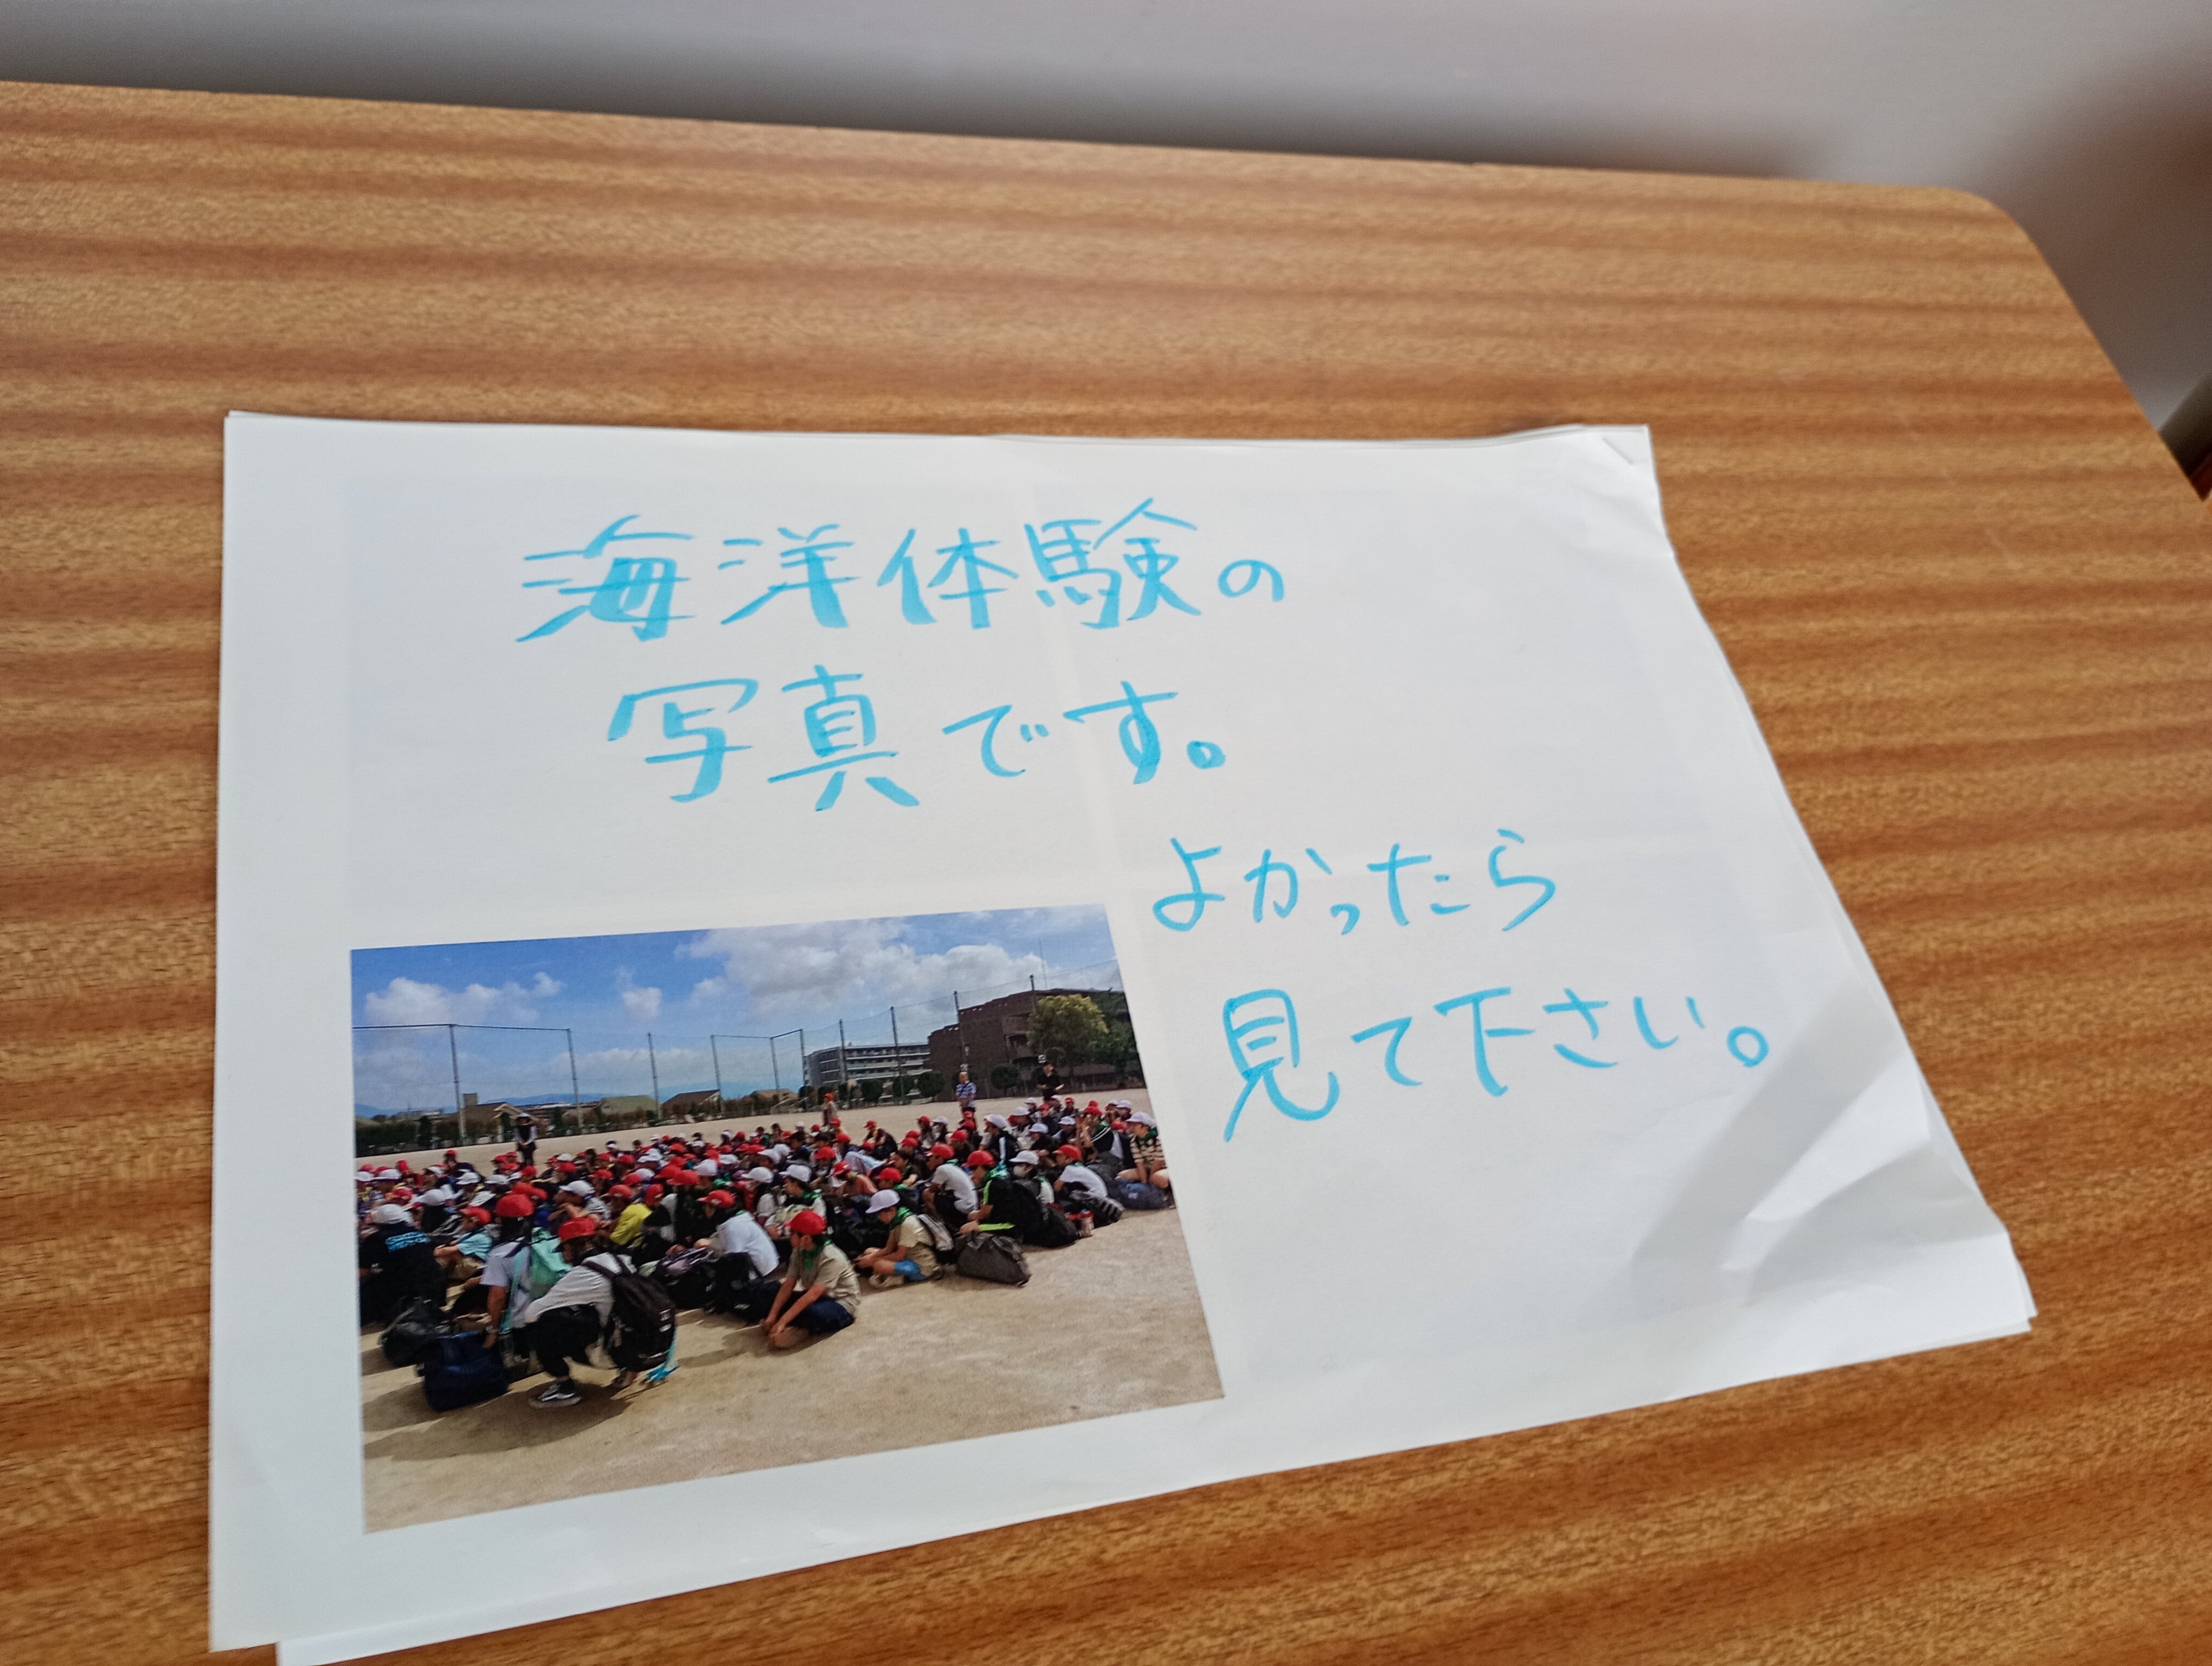 海洋体験の
写真です。
よかったら
見て下さい。